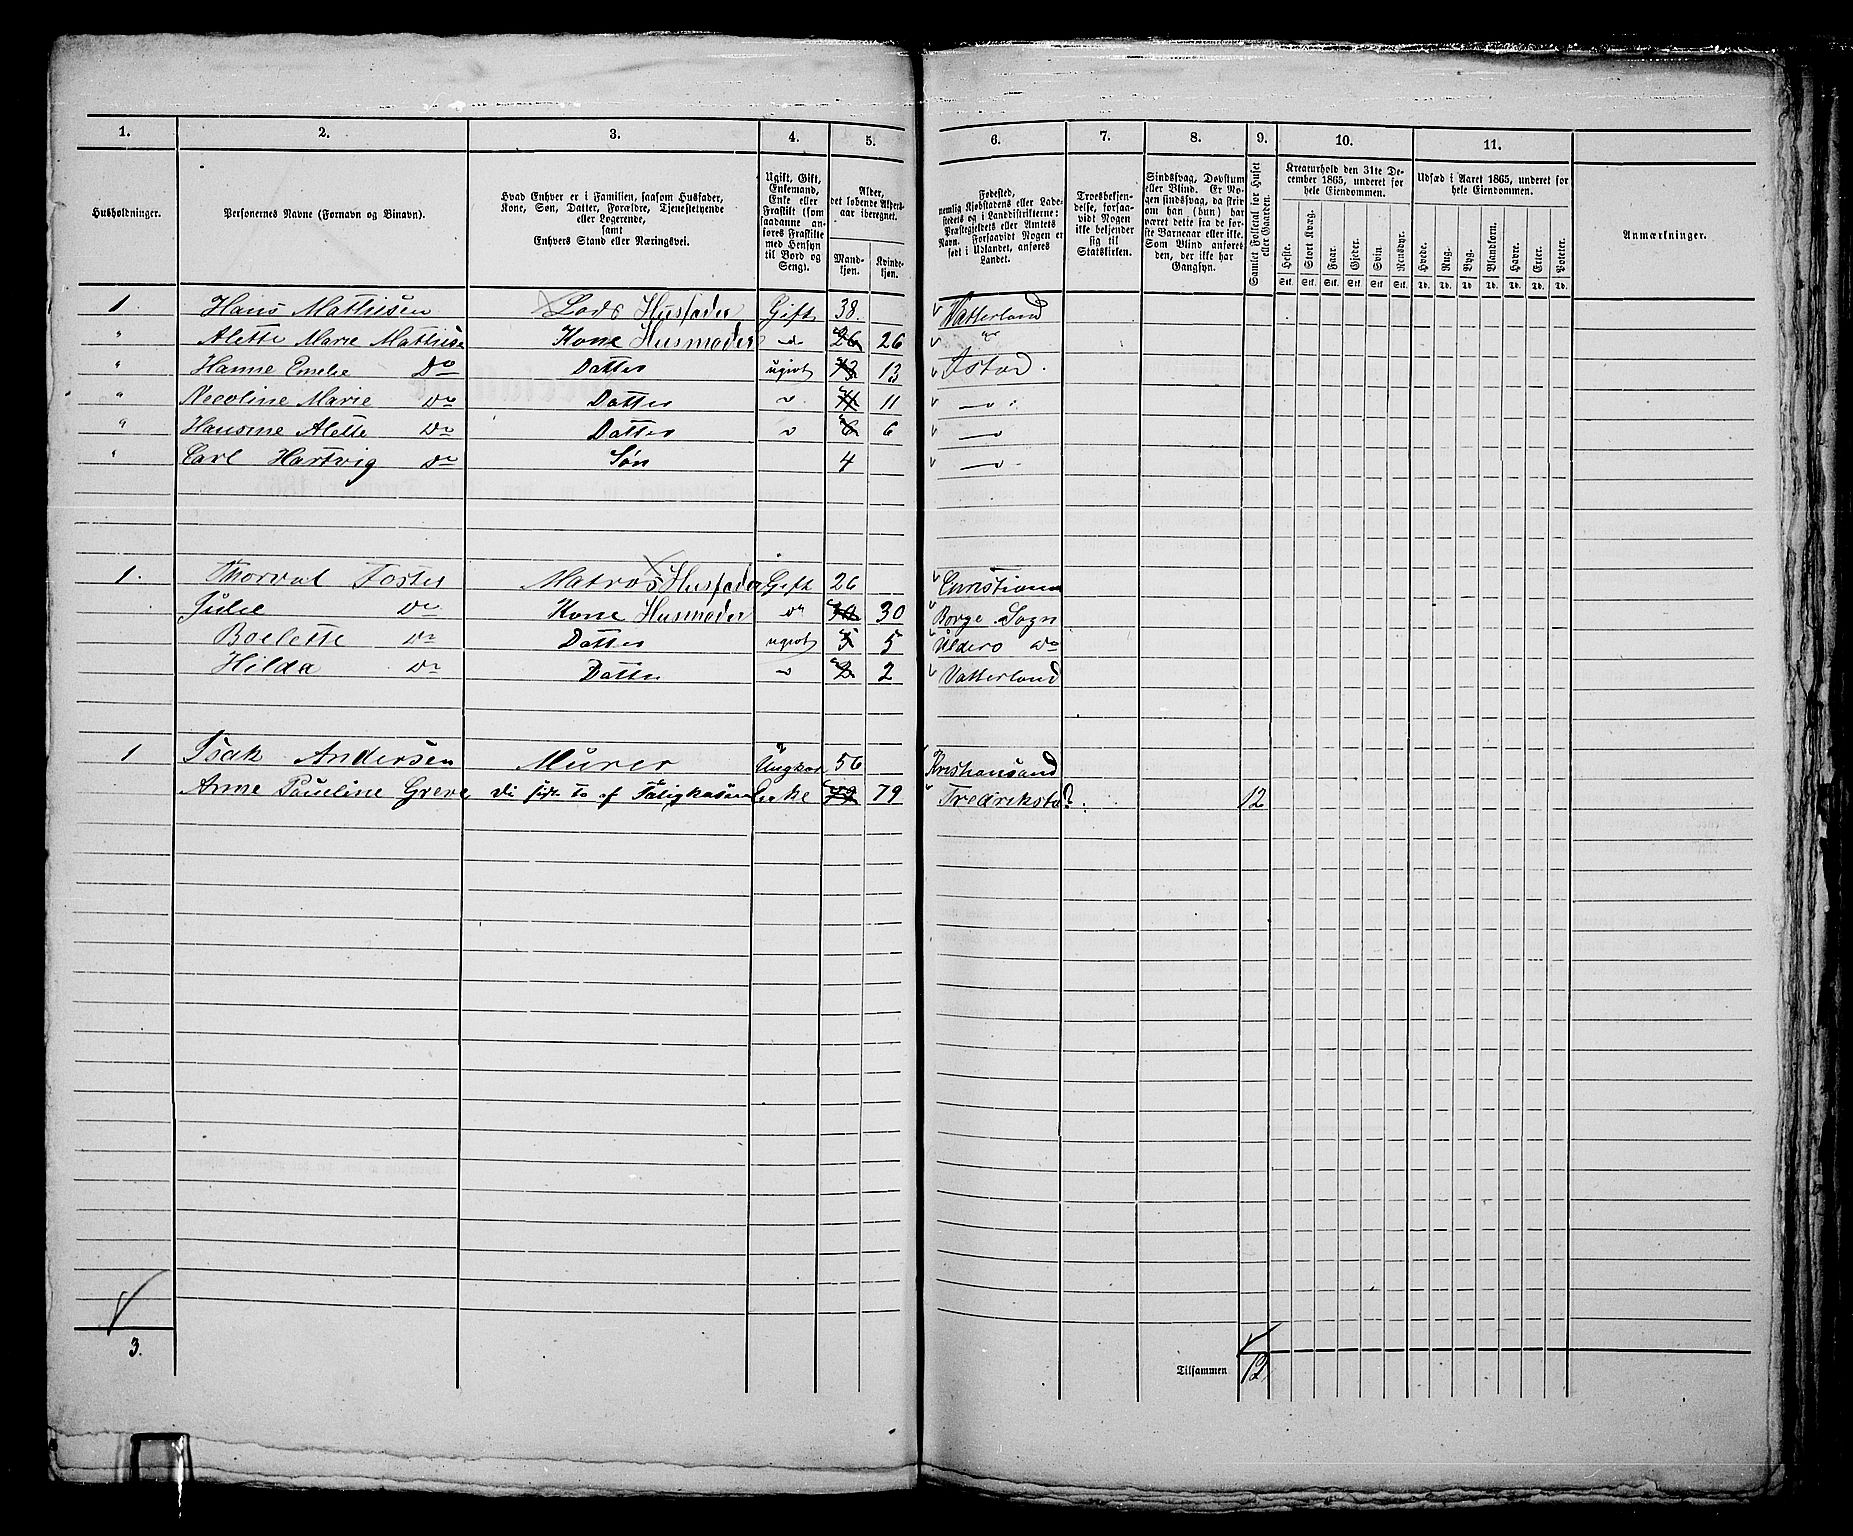 1. 2. 3. 4. 5. 6. 7. 8. 9. 10. 11.
Husholdninger.
Personernes Navne (Fornavn og Binavn).
Hvad Enhver er i Familien, saasom Husfader,
Kone, Søn, Datter, Forældre, Tjenestetyende
eller Logerende,
samt
Enhvers Stand eller Næringsvei.
Ugift, Gift,
Enkemand,
Enke eller
Fraskilt (som
saadanne an-
føres Fraskilte
med Hensyn
til Bord og
Seng).
Alder,
det løbende Alders-
aar iberegnet.
Mand-
kjøn.
Kvinde-
kjøn.
Fødested,
nemlig Kjøbstadens eller Lade-
stedets og i Landdistrikterne:
Præstegjeldets eller Amtets
Navn. Forsaavidt Nogen er
født i Udlandet, anføres
Landet.
Troesbekjen-
delse, forsaa-
vidt Nogen
ikke bekjender
sig til
Statskirken.
Sindssvag, Døvstum
eller Blind. Er No-
gen sindssvag, da skri-
ves om han (hun) har
været dette fra de før-
ste Barneaar eller ikke.
Som Blind anføres
den, der ikke har
Gangsyn.
Samlet Folketal for Huset
eller Gaarden.
Kreaturhold den 31te De-
cember 1865, underet for
hele Eiendommen.
Heste. Stort Kvæg. Faar. Gjeder. Svin. Rensdyr.
Stk. Stk. Stk. Stk. Stk. Stk.
Udsæd i Aaret 1865, underet for
hele Eiendommen.
Hvede. Rug. Byg. Blandkorn. Havre. Erter. Poteter.
Td. Td. Td. Td. Td. Td. Td.
Anmærkninger.
1. Hans Mathisen Lods Husfader Gift 38. Vatterland
" Alette Marie Mathise Kone Husmoder do 26 26 "
" Hanne Emelie Do Datter ugivt 13 13
" Necoline Marie Do Datter " 11 11 — " —
" Hansine Alette Do Datter " 6 6 — " —
" Carl Hartvig Do Søn 4 — " —
1. Thorval Foster Matros Husfader Gift 26 Christiania
Julie Do Kone Husmoder do 30 30 Borge Sogn
Boelette Do Datter ugivt 5 5 Do
Hilda Do Datter " 2 2 Vatterland
1 Isak Andersen Murer Ungkar 56 Kristiansand
Anne Pauline Greve af Enke 79 79 Fredriksta? 12
3.
Tilsammen 12